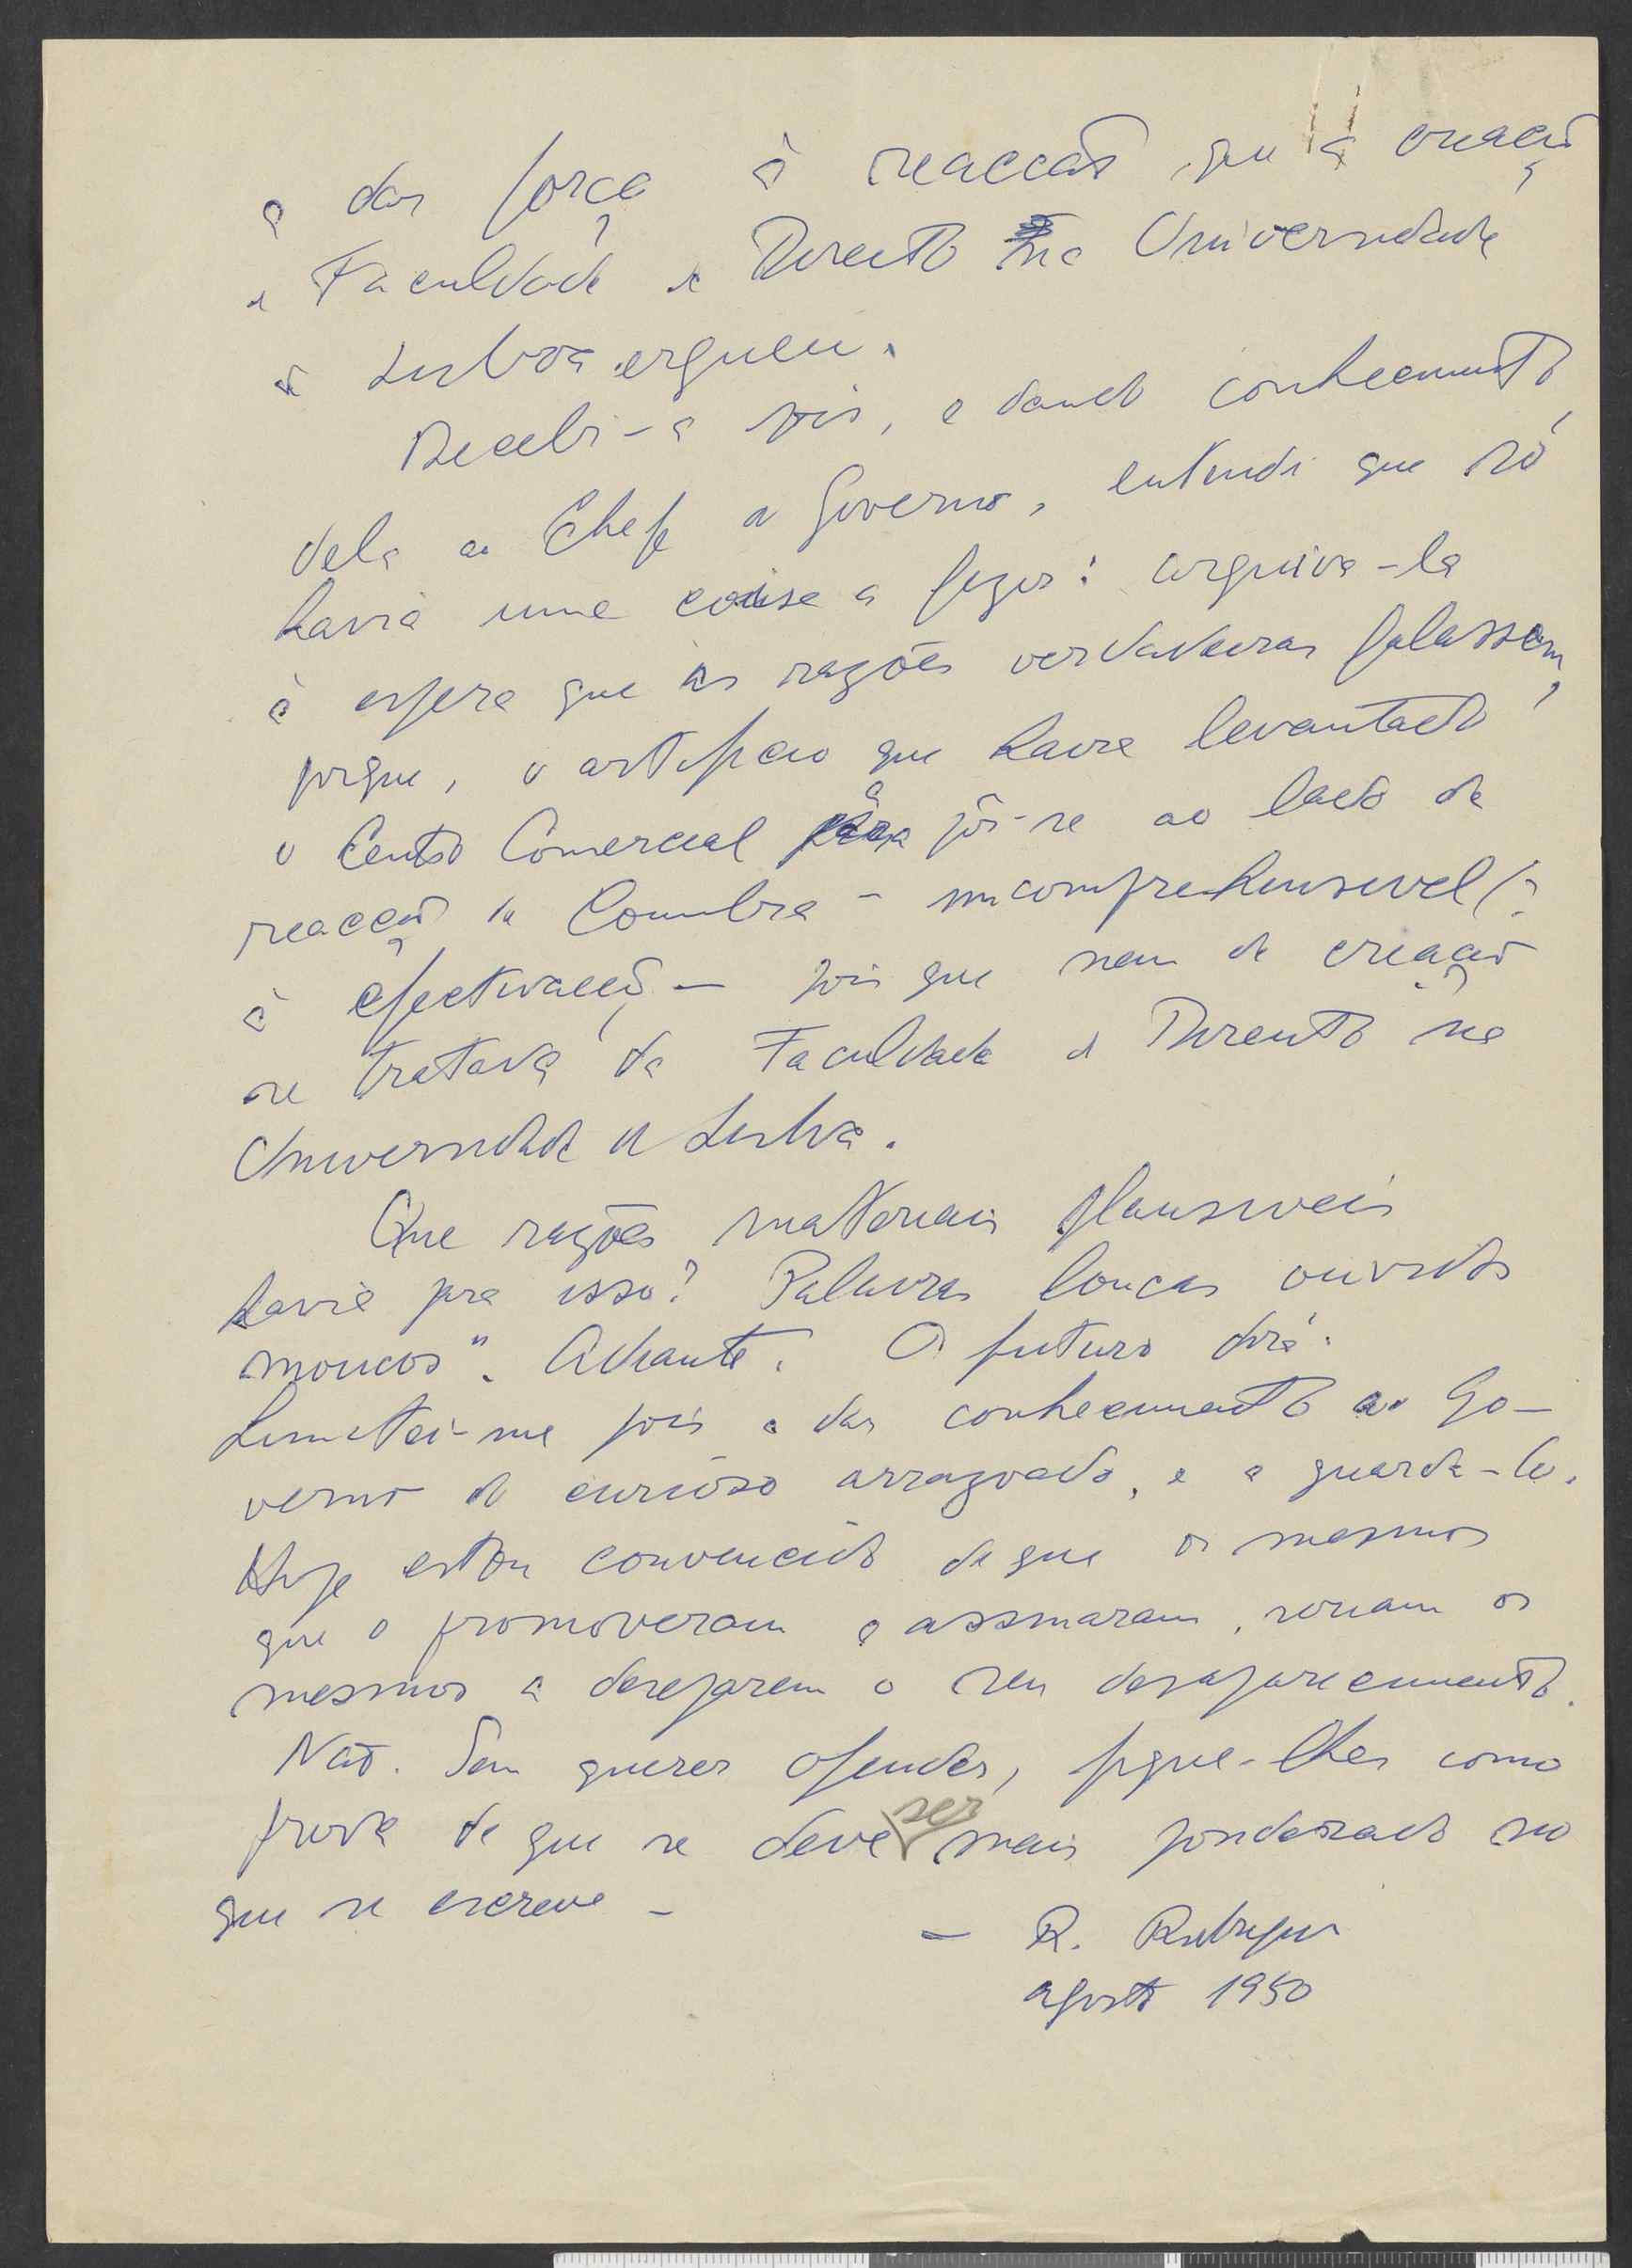 a dar força á reacção que a creação
de Faculdade de Direito na Universidade
de Lisboa ergueu.
Recebi-a pois, e dando conhecimento
dela ao Chefe do Governo, entendi que só
havia uma coisa a fazer: arquiva-la
á espera que as razões verdadeiras falassem,
porque, o artificio que havia levantado
o Centro Comercial a pôr-se ao lado da
reacção de Coimbra - incomprehensivel (?
á efectivação - pois que nem de creação
se tratava da Faculdade de Direito na
Universidade de Lisboa.
Que razões materiais plausiveis
havia pra isso? Palavras loucas ouvidos
moucos". Adiante. O futuro dirá.
Limitei-me pois a dar conhecimento ao Go-
verno do curioso arrazoado, e a guarda-lo.
Hoje estou convencido de que os mesmos
que o promoveram e assinaram, seriam os
mesmos a desejarem o seu desaparecimento.
Não. Sem querer ofender, fique-lhes como
prova de que se deve ser mais ponderado no
que se escreve -
- R. Rodrigues
agosto 1950